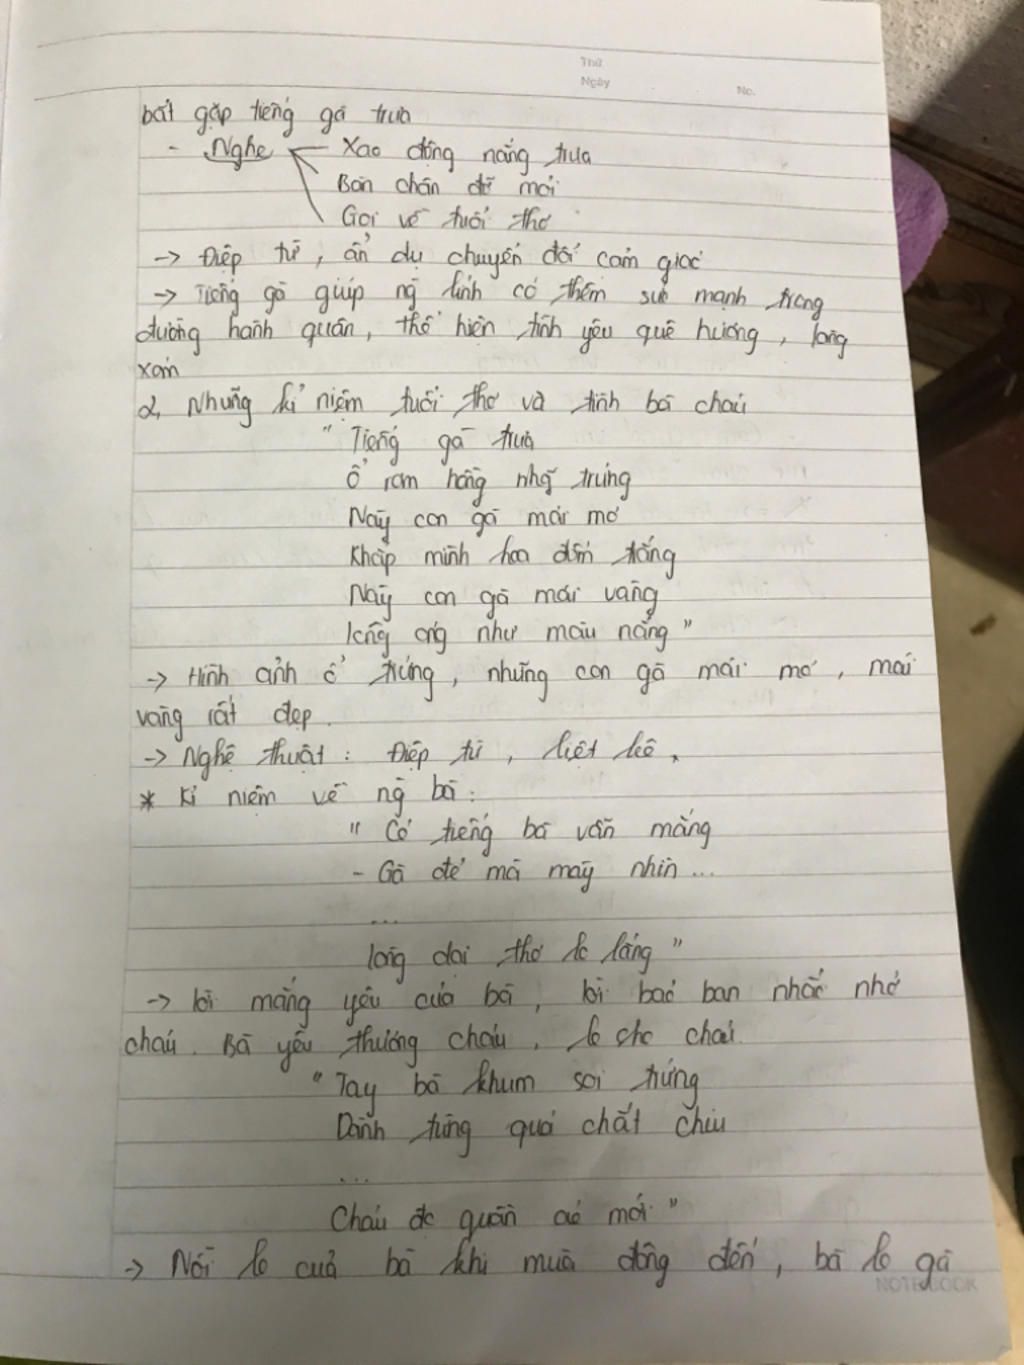 Thứ
Ngày
No.
bắt gặp tiếng gà trưa
- Nghe Xao động nắng trưa
Bàn chân đỡ mỏi
Gọi về tuổi thơ
-> Điệp từ, ẩn dụ chuyển đổi cảm giác
-> Tiếng gà giúp ng lính có thêm sức mạnh trong
đường hành quân, thể hiện tình yêu quê hương, làng
xóm
2, Những kỉ niệm tuổi thơ và tình bà cháu
" Tiếng gà trưa
Ổ rơm hồng những trứng
Này con gà mái mơ
Khắp mình hoa đốm trắng
Này con gà mái vàng
lông óng như màu nắng "
-> Hình ảnh ổ trứng, những con gà mái mơ, mái
vàng rất đẹp.
-> Nghệ thuật : Điệp từ, liệt kê.
* Kỉ niệm về ng bà :
" Có tiếng bà vẫn mắng
- Gà đẻ mà mày nhìn ...
...
lòng dại thơ lo lắng "
-> lời mắng yêu của bà, lời bảo ban nhắc nhở
cháu. Bà yêu thương cháu, lo cho cháu.
" Tay bà khum soi trứng
Dành từng quả chắt chiu
...
Cháu đc quần áo mới "
-> Nỗi lo của bà khi mùa đông đến, bà lo gà
NOTEBOOK